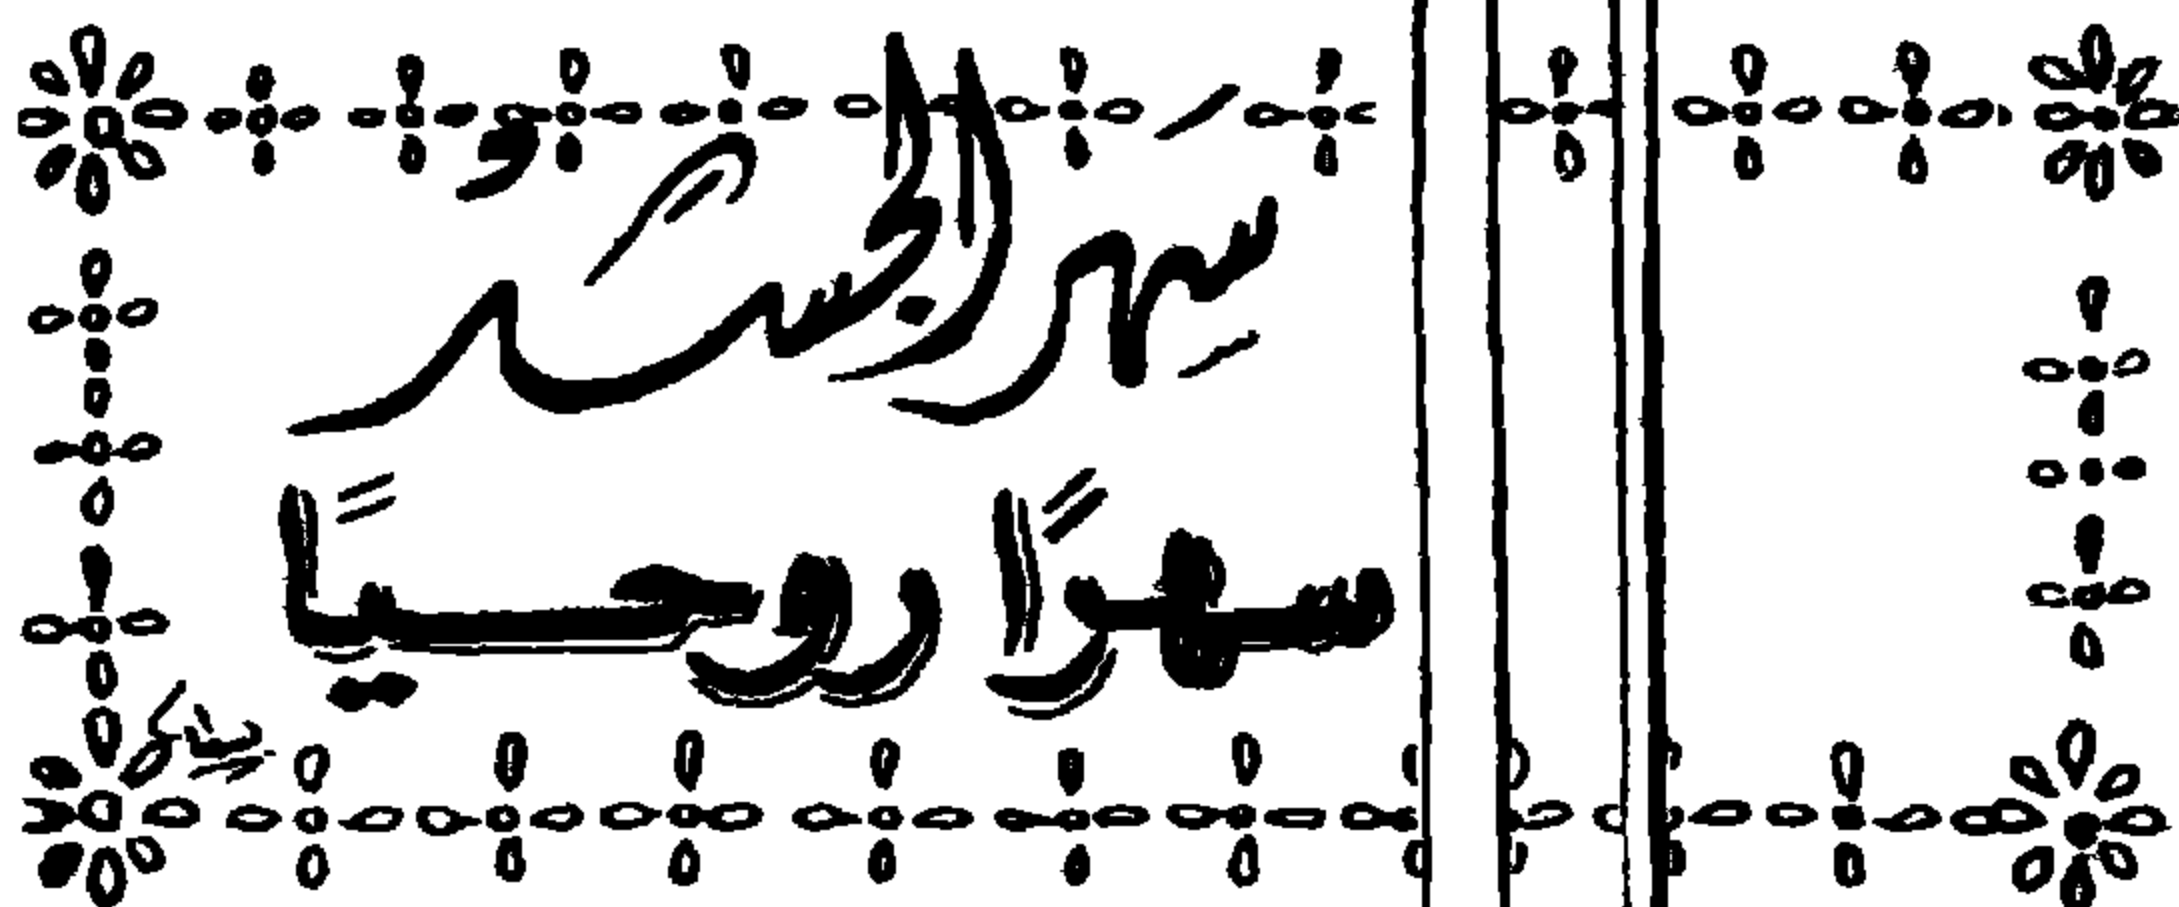 سَهِر الجسَدُ
سهرًا روحيًا